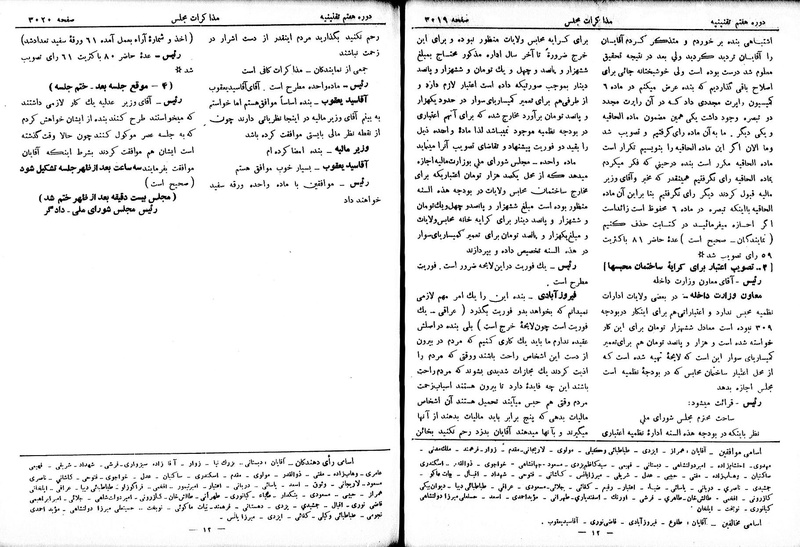 دوره هفتم تقنینیه
مذاکرات مجلس
صفحه ۳۰۱۹
اشتباهی بنده بر خوردم و متذکر کردم آقایان
را آقایان تردید کردید ولی بعد در نتیجه تحقیق
معلوم شد درست بوده است ولی خوشبختانه جائی برای
اصلاح باقی گذاردیم که بنده عرض میکنم در ماده ۶
کمیسیون راپرت مجددی داد که در آن راپرت مجدد
دو تبصره وجود داشت یکی همین مضمون ماده الحاقیه
و یکی دیگر . ما به آن ماده رأی گرفتیم و تصویب شد
وما الان اگر این ماده الحاقیه را بنویسیم تکرار است
ماده الحاقیه مکرر است بنده درحینی که فکر میکردم
بماده الحاقیه رأی نگرفتیم همینقدر که مخبر وآقای وزیر
مالیه قبول کردند دیگر رأی نگرفتیم بنا براین آن ماده
الحاقیه بااینکه تبصره در ماده ۶ محفوظ است زائداست
اگر اجازه میفرمائید در کتابت حذف کنیم
( نمایندگان ـ صحیح است ) عدهٔ حاضر ۸۱ باکثریت
۵۹ رأی تصویب شد
[ ۳ ـ تصویب اعتبار برای کرایهٔ ساختمان محبسها ]
رئیس ـ آقای معاون وزارت داخله
معاون وزارت داخله ـ در بعضی ولایات ادارات
نظمیه محبس ندارد و اعتباراتی هم برای اینکار دربودجه
۳۰۹ نبوده است معادل ششهزار تومان برای این کار
خواسته شده است و هزار و پانصد تومان هم برای تعمیر
کمیساریای سوار این است که لایحهٔ تهیه شده است که
از محل اعتبار ساختمان محابس که در بودجهٔ نظمیه است
مجلس اجازه بدهد
رئیس ـ قرائت میشود:
ساحت محترم مجلس شورای ملی
نظر باینکه در بودجه هذه السنه ادارهٔ نظمیه اعتباری
برای کرایه محابس ولایات منظور نبوده و برای این
خرج ضرورة تا آخر سال اداره مذکور محتاج بمبلغ
ششهزار و پانصد و چهل و یک تومان و ششهزار و پانصد
دینار بموجب صورتیکه داده است اعتبار لازم دارد و
از طرفی هم برای تعمیر کمیساریای سوار در حدود یکهزار
و پانصد تومان برآورد خارج شده که برای آنهم اعتباری
در بودجه نظمیه موجود نمیباشد لذا مادهٔ واحده ذیل
را بقید دو فوریت پیشنهاد و تقاضای تصویب آنرا مینماید
ماده واحده ـ مجلس شورای ملی بوزارت مالیه اجازه
میدهد که از محل یکصد هزار تومان اعتباریکه برای
مخارج ساختمان محابس ولایات در بودجه هذه السنه
منظور بوده است مبلغ ششهزار و پانصد و چهل و یک تومان
و ششهزار و پانصد دینار برای کرایه خانه محابس ولایات
و مبلغ یکهزار و پانصد تومان برای تعمیر کمیساریای سوار
در هذه السنه تخصیص داده و بپردازند
رئیس ـ یک فوریت دراین لایحه ضرور است . فوریت
مطرح است .
فیروزآبادی ـ بنده این را یک امر مهم لازمی
نمیدانم که بخواهد بدو فوریت بگذرد ( عراقی ـ یک
فوریت است چون لایحهٔ خرج است ) بلی بنده دراصلش
عقیده ندارم ما باید یک کاری کنیم که مردم را
از دست این اشخاص راحت باشند ووقتی که مردم را
اذیت کردند یک مجازات شدیدی بشوند که مردم راحت
باشند این چه فایدهٔ دارد تا بیرون هستند اسباب زحمت
مردم وقتی هم حبس میآیند تحمیل هستند آن اشخاص
مالیات بدهی که پنج برابر باید مالیات بدهند از آنها
میگیرند و بآنها میدهند آقایان بدزد رحم نکنید بخائن
اسامی مخالفین ـ آقایان : طلوع ـ فیروزآبادی ـ قاضی نوری ـ آقاسیدیعقوب .
ـ ۱۲ ـ
دوره هفتم تقنینیه
مذاکرات مجلس
صفحه ۳۰۲۰
رحم نکنید بگذارید مردم اینقدر از دست اشرار در
زحمت نباشند
جمعی از نمایندگان ـ مذاکرات کافی است
رئیس ـ ماده واحده مطرح است . آقای آقاسیدیعقوب
آقاسید یعقوب ـ بنده اساساً موافق هستم اما خواستم
به بینم آقای وزیر مالیه در اینجا نظریاتی دارند چون
از نقطه نظر مالی بایستی موافقت کرده باشد
وزیر مالیه ـ بنده امضا کرده ام
آقاسید یعقوب ـ بسیار خوب موافق هستم
رئیس ـ موافقین با ماده واحده ورقه سفید
خواهند داد
( اخذ و شمارهٔ آراء بعمل آمده ۶۱ ورقهٔ سفید تعدادشد)
رئیس ـ عدهٔ حاضر ۸۰ باکثریت ۶۱ رأی تصویب
شد
( ۴ ـ موقع جلسه بعد ـ ختم جلسه )
رئیس ـ آقای وزیر عدلیه یک کار لازمی داشتند
که میخواستند طرح کنند بنده از ایشان خواهش کردم
که به جلسه عصر موکول کنند چون حالا وقت گذشته
است ایشان هم موافقت کردند بشرط اینکه آقایان
موافقت بفرمایند سه ساعت بعد ازظهر جلسه تشکیل شود
( صحیح است )
( مجلس بیست دقیقه بعد از ظهر ختم شد )
رئیس مجلس شورای ملی ـ دادگر
ـ ۱۲ ـ